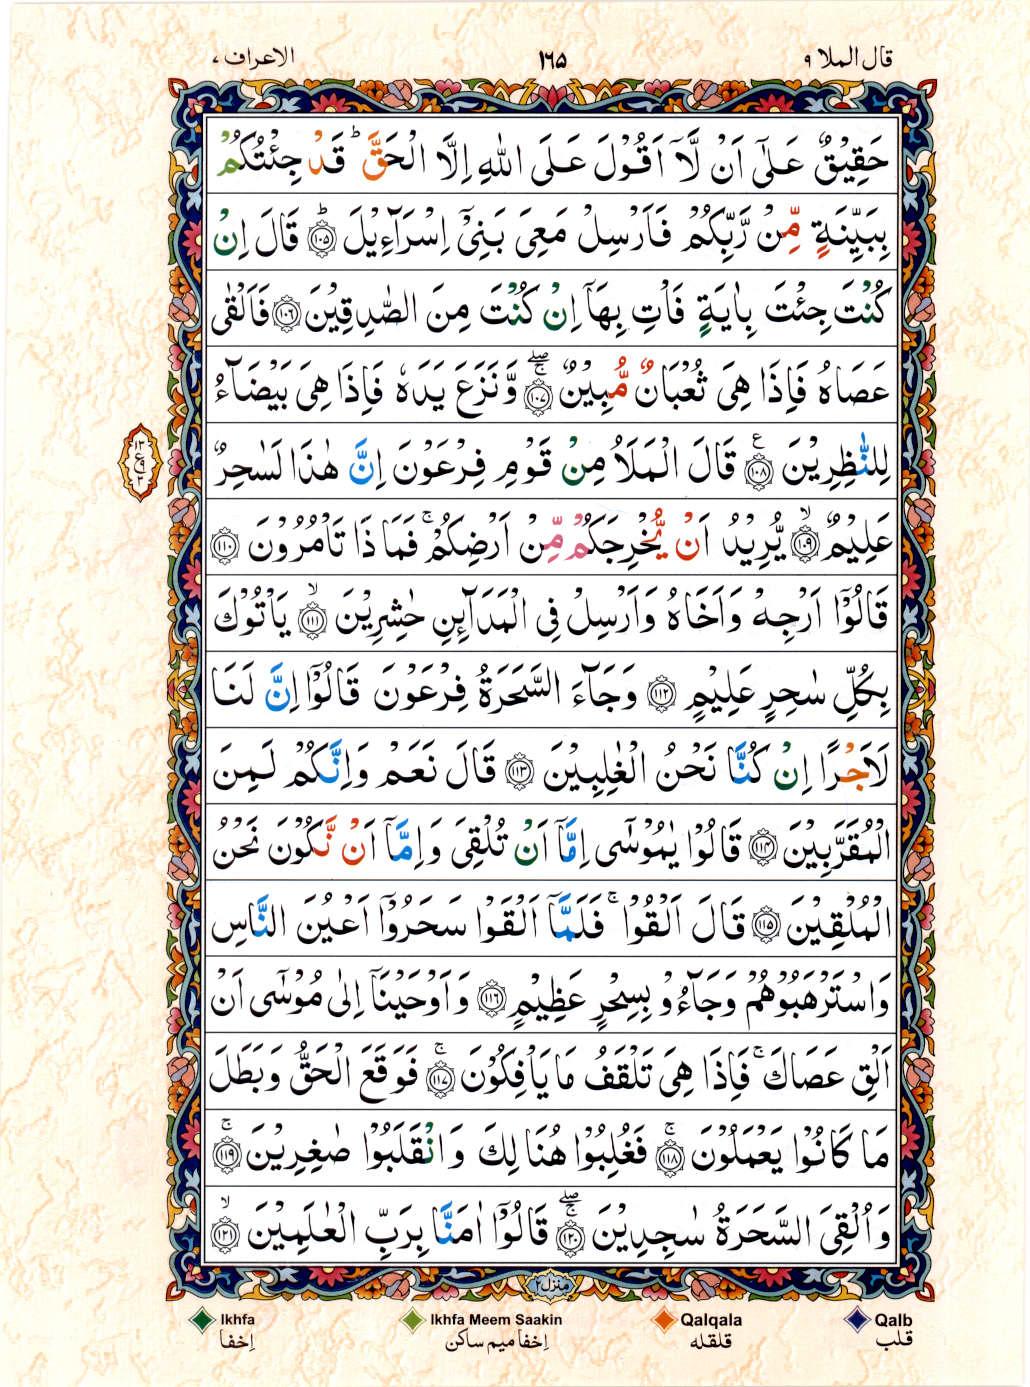 قال الملا ٩
١٦٥
الاعراف ٧
حَقِیْقٌ عَلٰۤی اَنْ لَّاۤ اَقُوْلَ عَلَی اللّٰهِ اِلَّا الْحَقَّ ؕ قَدْ جِئْتُكُمْ
بِبَیِّنَةٍ مِّنْ رَّبِّكُمْ فَاَرْسِلْ مَعِیَ بَنِیْۤ اِسْرَآءِیْلَ ؕ۝۱۰۵ قَالَ اِنْ
كُنْتَ جِئْتَ بِاٰیَةٍ فَاْتِ بِهَاۤ اِنْ كُنْتَ مِنَ الصّٰدِقِیْنَ ۝۱۰۶ فَاَلْقٰی
عَصَاهُ فَاِذَا هِیَ ثُعْبَانٌ مُّبِیْنٌ ۚۖ۝۱۰۷ وَّنَزَعَ یَدَهٗ فَاِذَا هِیَ بَیْضَآءُ
لِلنّٰظِرِیْنَ ۠۝۱۰۸ قَالَ الْمَلَاُ مِنْ قَوْمِ فِرْعَوْنَ اِنَّ هٰذَا لَسٰحِرٌ
عَلِیْمٌ ۙ۝۱۰۹ یُّرِیْدُ اَنْ یُّخْرِجَكُمْ مِّنْ اَرْضِكُمْ ۚ فَمَاذَا تَاْمُرُوْنَ ۝۱۱۰
قَالُوْۤا اَرْجِهْ وَاَخَاهُ وَاَرْسِلْ فِی الْمَدَآئِنِ حٰشِرِیْنَ ۙ۝۱۱۱ یَاْتُوْكَ
بِكُلِّ سٰحِرٍ عَلِیْمٍ ۝۱۱۲ وَجَآءَ السَّحَرَةُ فِرْعَوْنَ قَالُوْۤا اِنَّ لَنَا
لَاَجْرًا اِنْ كُنَّا نَحْنُ الْغٰلِبِیْنَ ۝۱۱۳ قَالَ نَعَمْ وَاِنَّكُمْ لَمِنَ
الْمُقَرَّبِیْنَ ۝۱۱۴ قَالُوْا یٰمُوْسٰۤی اِمَّاۤ اَنْ تُلْقِیَ وَاِمَّاۤ اَنْ نَّكُوْنَ نَحْنُ
الْمُلْقِیْنَ ۝۱۱۵ قَالَ اَلْقُوْا ۚ فَلَمَّاۤ اَلْقَوْا سَحَرُوْۤا اَعْیُنَ النَّاسِ
وَاسْتَرْهَبُوْهُمْ وَجَآءُوْ بِسِحْرٍ عَظِیْمٍ ۝۱۱۶ وَاَوْحَیْنَاۤ اِلٰی مُوْسٰۤی اَنْ
اَلْقِ عَصَاكَ ۚ فَاِذَا هِیَ تَلْقَفُ مَا یَاْفِكُوْنَ ۚ۝۱۱۷ فَوَقَعَ الْحَقُّ وَبَطَلَ
مَا كَانُوْا یَعْمَلُوْنَ ۚ۝۱۱۸ فَغُلِبُوْا هُنَالِكَ وَانْقَلَبُوْا صٰغِرِیْنَ ۚ۝۱۱۹
وَاُلْقِیَ السَّحَرَةُ سٰجِدِیْنَ ۚۖ۝۱۲۰ قَالُوْۤا اٰمَنَّا بِرَبِّ الْعٰلَمِیْنَ ۙ۝۱۲۱
منزل ٢
Ikhfa
اِخفا
Ikhfa Meem Saakin
اِخفا میم ساکن
Qalqala
قلقله
Qalb
قلب